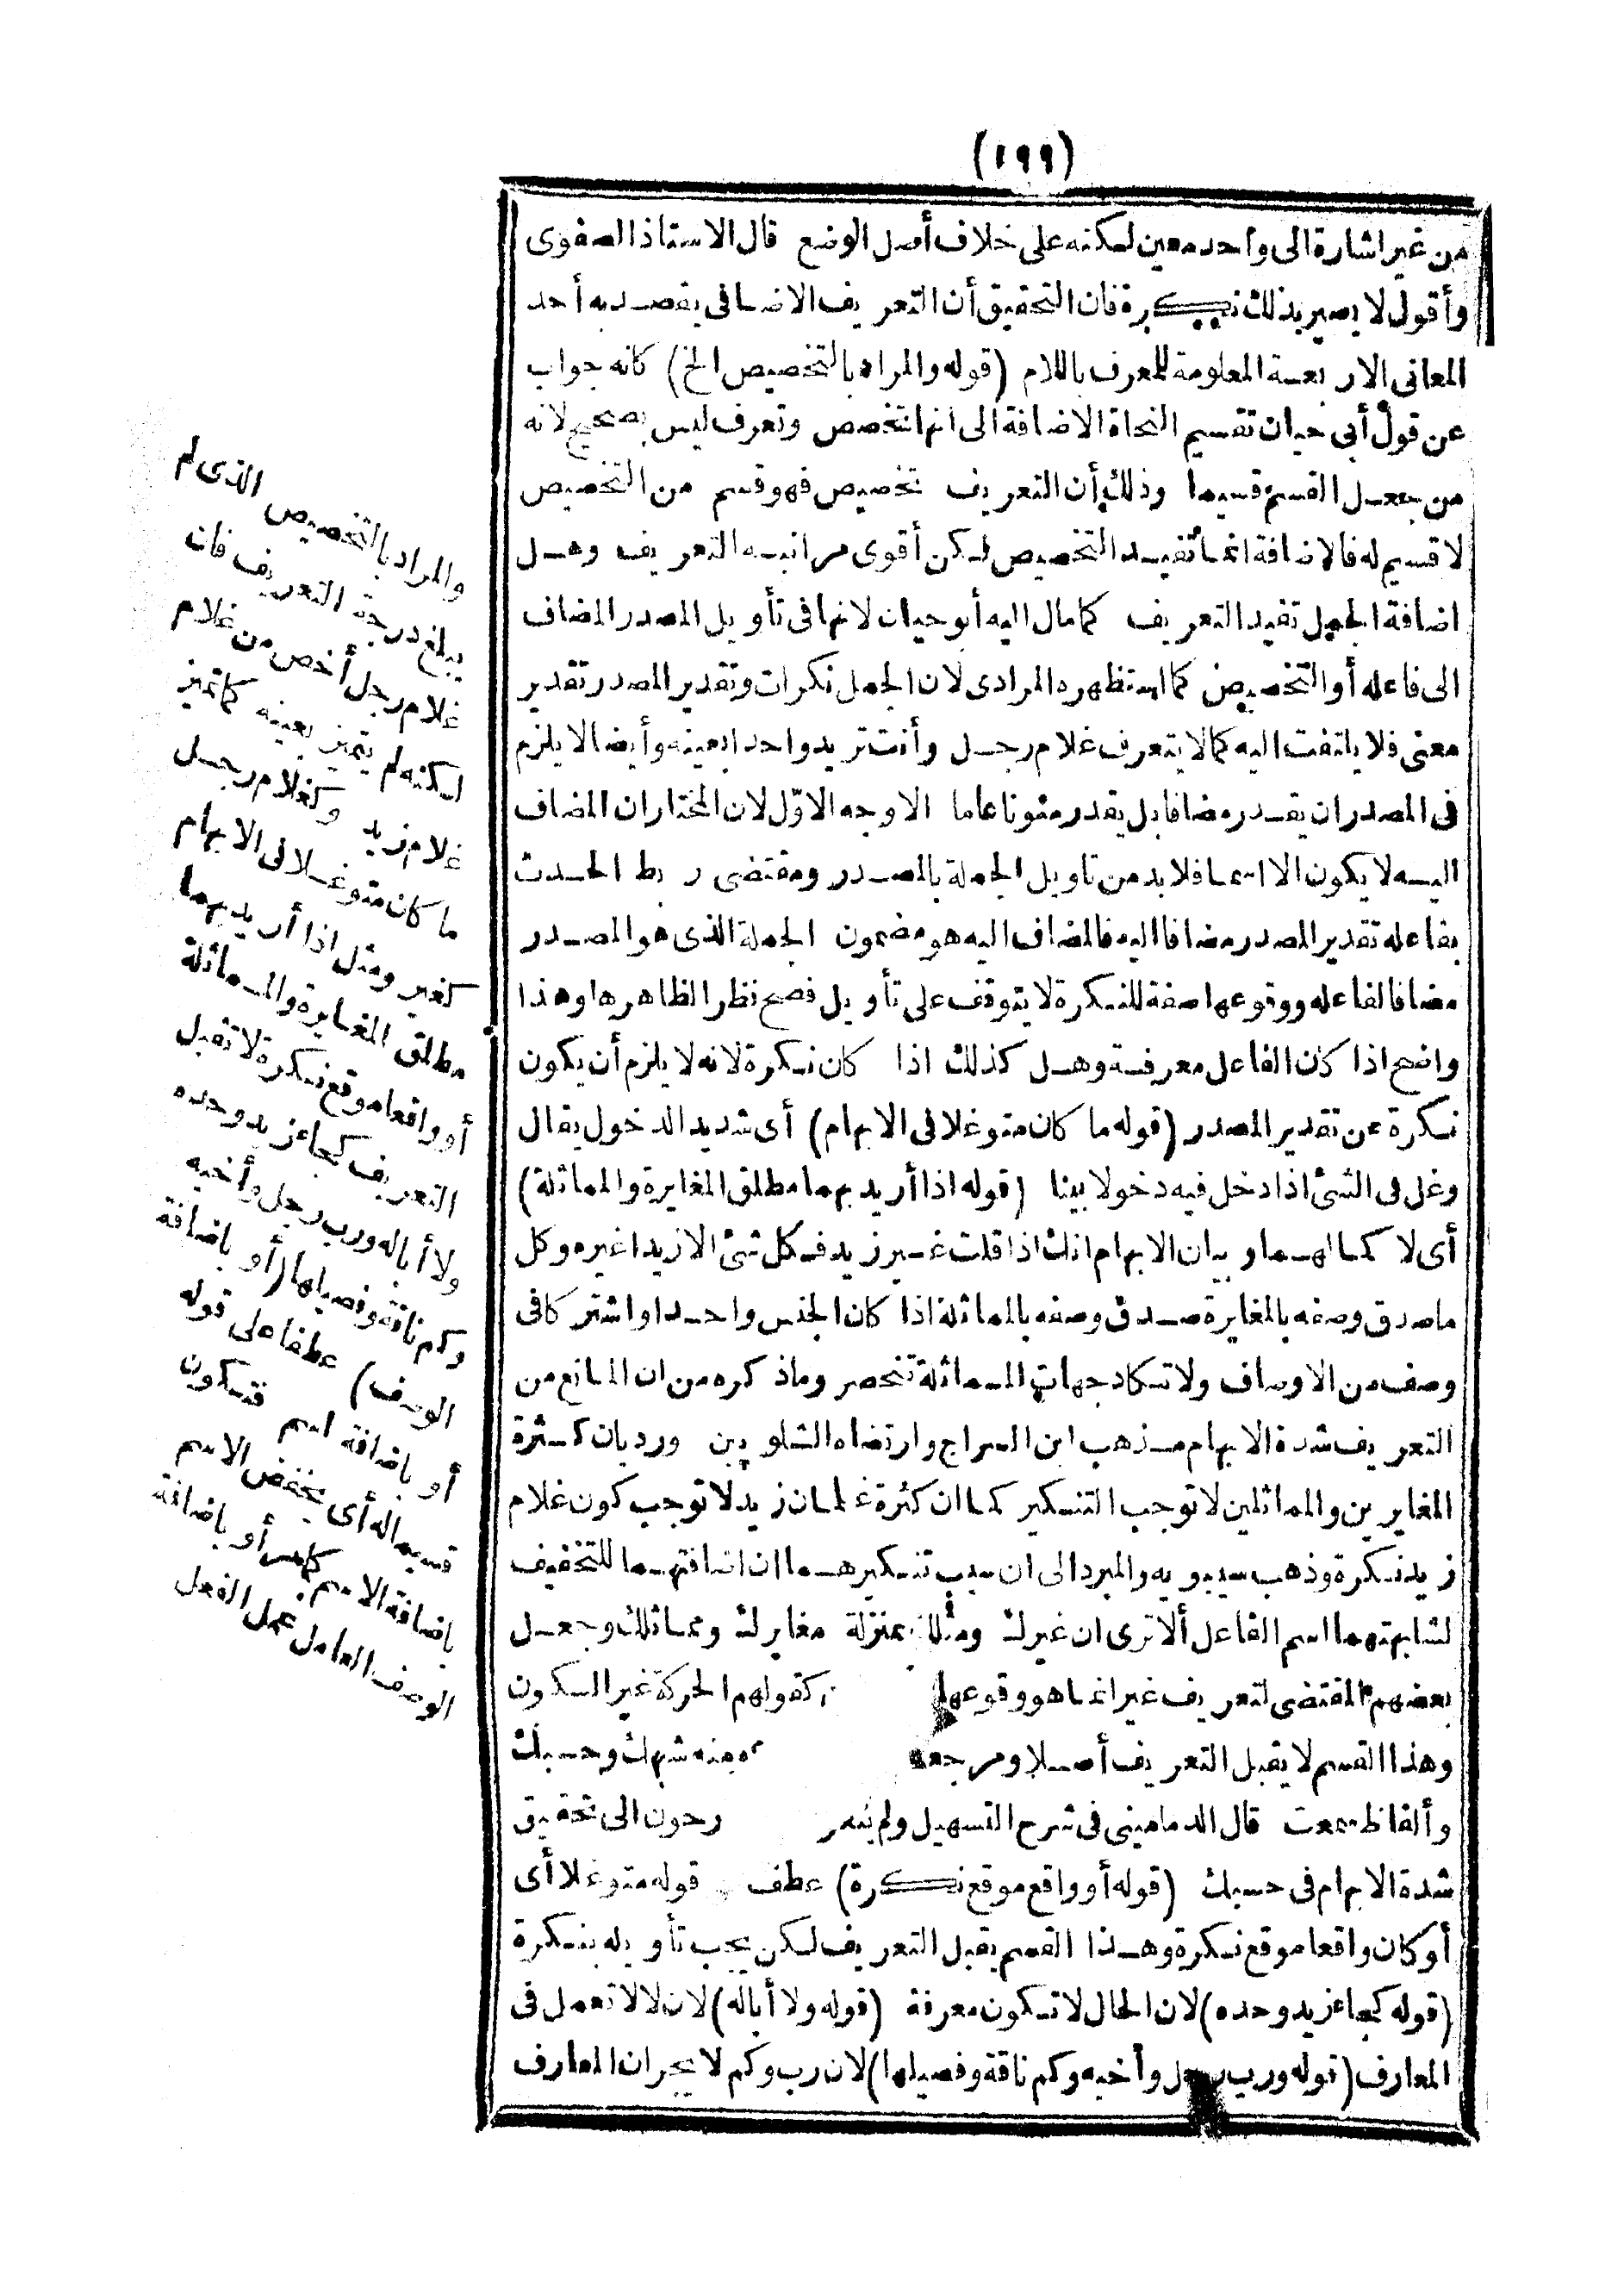 (١٩٩)
من غير اشارة الى واحد معين لكنه على خلاف أصل الوضع قال الاستاذ الصفوى
وأقول لا يصير بذلك نكرة فان التحقيق أن التعريف الاضافى يقصد به أحد
المعانى الاربعة المعلومة للمعرف باللام (قوله والمراد بالتخصيص الخ) كانه جواب
عن قول أبى حيان تقسيم النحاة الاضافة الى انها تخصص وتعرف ليس بصحيح لانه
من جعل القسم قسيما وذلك أن التعريف تخصيص فهو قسم من التخصيص
لا قسيم له فالاضافة انما تفيد التخصيص لكن أقوى مراتبه التعريف وهل
اضافة الجمل تفيد التعريف كما مال اليه أبو حيان لانها فى تأويل المصدر المضاف
الى فاعله أو التخصيص كما استظهره المرادى لان الجمل نكرات وتقدير المصدر تقدير
معنى فلا يلتفت اليه كما لا يتعرف غلام رجل وأنت تريد واحدا بعينه وأيضا لا يلزم
فى المصدر ان يقدر مضافا بل يقدر منونا عاما الاوجه الاوّل لان المختار ان المضاف
اليه لا يكون الا اسما فلا بد من تاويل الجملة بالمصدر ومقتضى ربط الحدث
بفاعله تقدير المصدر مضافا اليه فالمضاف اليه هو مضمون الجملة الذى هو المصدر
مضافا لفاعله ووقوعها صفة للنكرة لا يتوقف على تأويل فصح نظر الظاهرها وهذا
واضح اذا كان الفاعل معرفة وهل كذلك اذا كان نكرة لانه لا يلزم أن يكون
نكرة عن تقدير المصدر (قوله ما كان متوغلا فى الابهام) أى شديد الدخول يقال
وغل فى الشئ اذا دخل فيه دخولا بينا (قوله اذا أريد بهما مطلق المغايرة والمماثلة)
أى لا كمالهما وبيان الابهام انك اذا قلت غير زيد فكل شئ الا زيدا غيره وكل
ما صدق وصفه بالمغايرة صدق وصفه بالمماثلة اذا كان الجنس واحدا واشتركا فى
وصف من الاوصاف ولا تكاد جهات المماثلة تنحصر وما ذكره من ان المانع من
التعريف شدة الابهام مذهب ابن السراج وارتضاه الشلوبين ورد بان كثرة
المغايرين والمماثلين لا توجب التنكير كما ان كثرة غلمان زيد لا توجب كون غلام
زيد نكرة وذهب سيبويه والمبرد الى ان سبب تنكيرهما ان اضافتهما للتخفيف
لشابهتهما اسم الفاعل ألا ترى ان غيرك ومثلك بمنزلة مغايرك ومماثلك وجعل
بعضهم المقتضى لتعريف غير انما هو وقوعها كقولهم الحركة غير السكون
وهذا القسم لا يقبل التعريف أصلا ومرجعه ومنه شبهك وحسبك
وألفاظ سمعت قال الدمامينى فى شرح التسهيل ولم الى تحقيق
شدة الابهام فى حسبك (قوله أو واقع موقع نكرة) عطف قوله متوغلا أى
أو كان واقعا موقع نكرة وهذا القسم يقبل التعريف لكن يجب تأويله بنكرة
(قوله كجاء زيد وحده) لان الحال لا تكون معرفة (قوله ولا أباله) لان لا لا تعمل فى
المعارف (قوله ورب رجل وأخيه وكم ناقة وفصيلها) لان رب وكم لا يجران المعارف
والمراد بالتخصيص الذى لم
يبلغ درجة التعريف فان
غلام رجل أخص من غلام
لكنه لم يتميز بعينه كما تميز
غلام زيد وكغلام رجل
ما كان متوغلا فى الابهام
كغير ومثل اذا أريد بهما
مطلق المغايرة والمماثلة
أو واقعا موقع نكرة لا تقبل
التعريف كجاء زيد وحده
ولا أباله ورب رجل وأخيه
وكم ناقة وفصيلها (أو باضافة
الوصف) عطفا على قوله
أو باضافة اسم فتكون
قسيما له أى يخفض الاسم
باضافة الاسم كما مر أو باضافة
الوصف العامل عمل الفعل